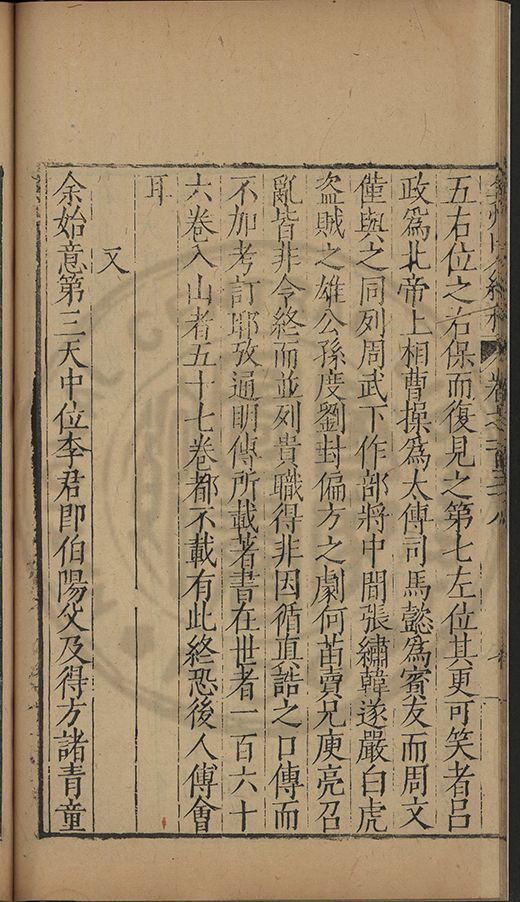 五右位之右保而復見之第七左位其更可笑者呂
政爲北帝上相曹操爲太傅司馬懿爲賓友而周文
僅與之同列周武下作部將中間張繡韓遂嚴白虎
盗賊之雄公孫度劉封偏方之劇何苗賣兄庾亮召
亂皆非令終而並列貴職得非因循真誥之口傳而
不加考訂耶攷通明傳所載著書在世者一百六十
六卷入山者五十七卷都不載有此終恐後人傅會
耳
又
余始意第三天中位李君即伯陽父及得方諸青童